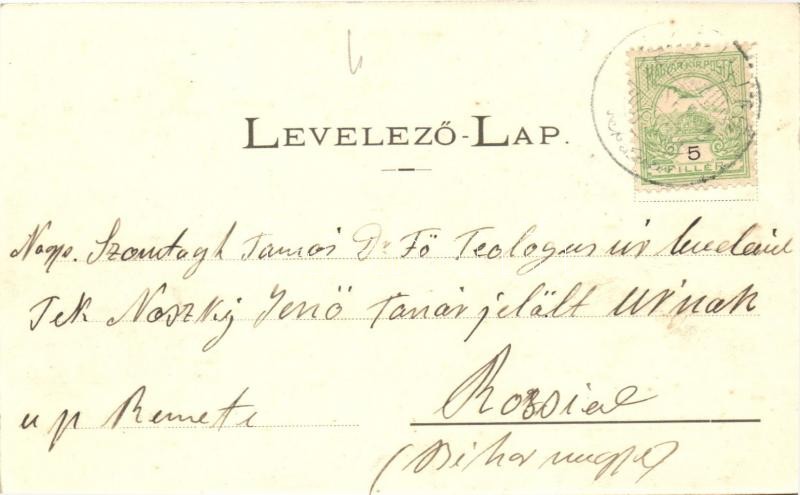 LEVELEZŐ-LAP.
MAGYAR KIR. POSTA
5
FILLÉR
Nagys. Szontagh Tamás Dr Fő Teologus úr
Tek Noszky Jenő Tanárjelölt Urnak
u p Remete
Rossia
(Bihar megye)